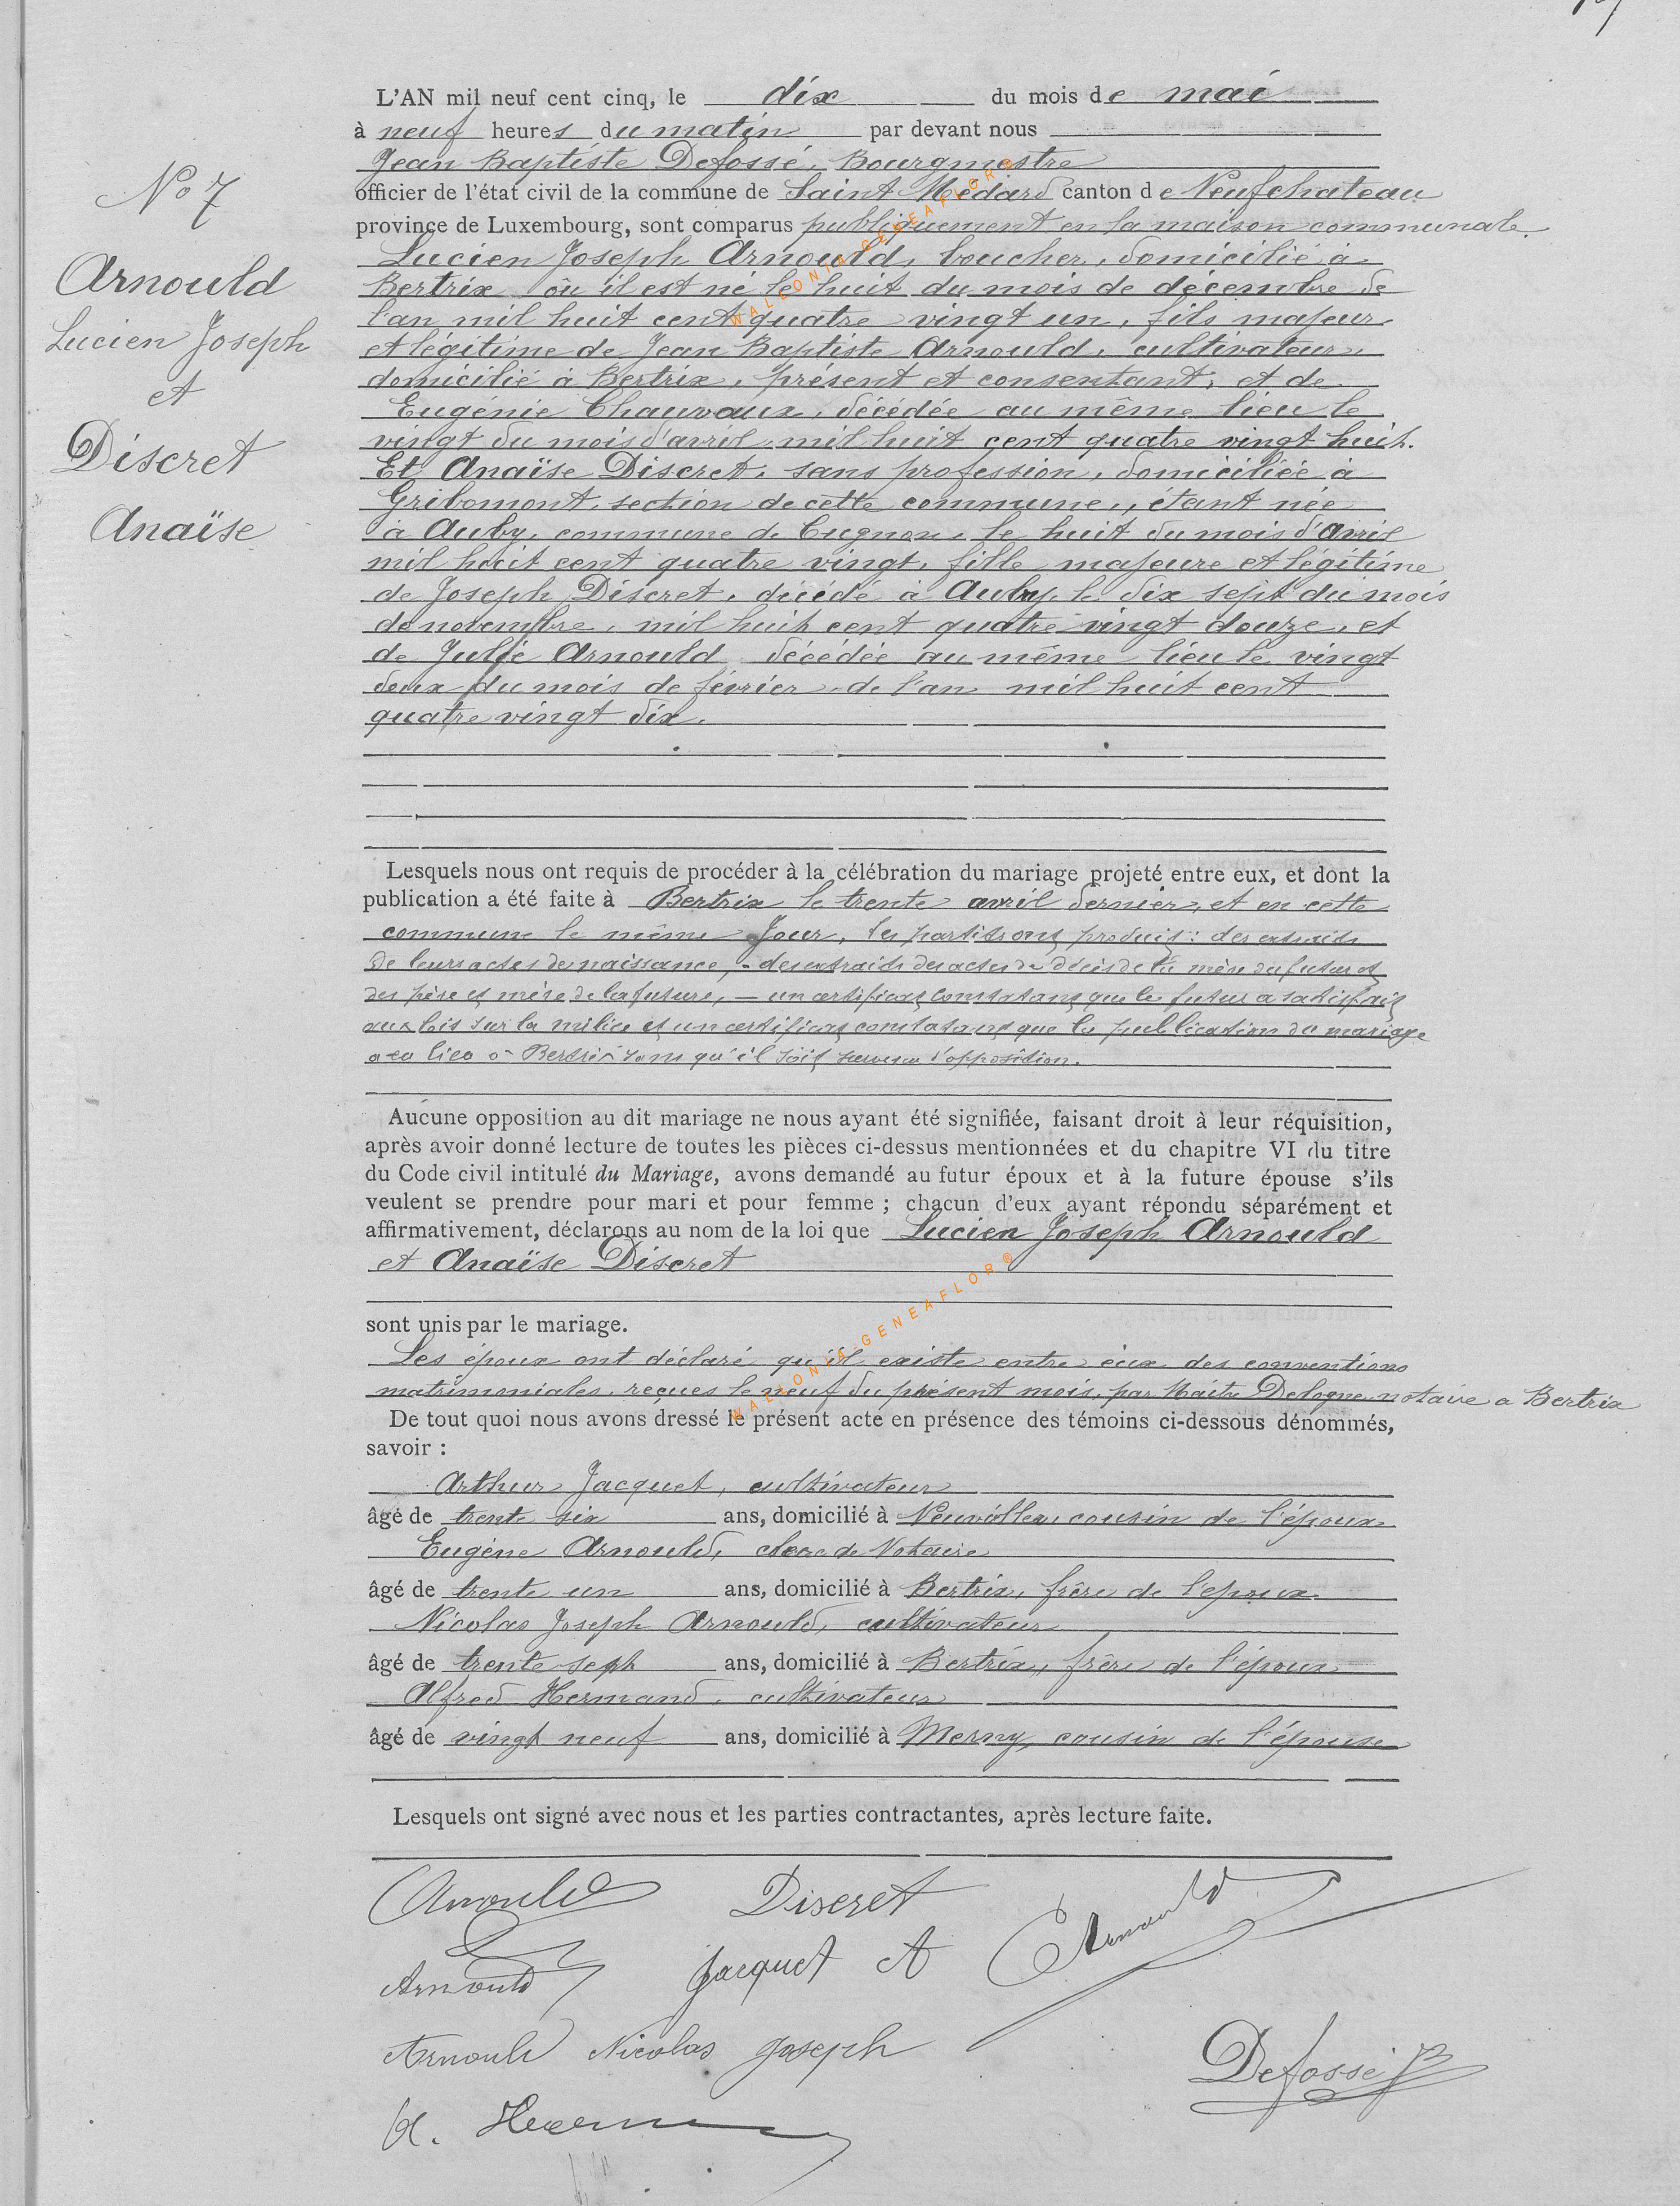 L'AN mil neuf cent cinq, le dix du mois de mai
à neuf heures du matin par devant nous
Jean Baptiste Defossé, Bourgmestre
officier de l'état civil de la commune de Saint Médard canton de Neufchateau
province de Luxembourg, sont comparus publiquement en la maison communale.
No 7
Arnould
Lucien Joseph
et
Discret
Anaïse
Lucien Joseph Arnould, boucher, domicilié à
Bertrix où il est né le huit du mois de décembre de
l'an mil huit cent quatre vingt un, fils majeur
et légitime de Jean Baptiste Arnould, cultivateur,
domicilié à Bertrix, présent et consentant, et de
Eugénie Chauvaux, décédée au même lieu le
vingt du mois d'avril mil huit cent quatre vingt huit.
Et Anaïse Discret, sans profession, domiciliée à
Gribomont, section de cette commune, étant née
à Auby, commune de Cugnon, le huit du mois d'avril
mil huit cent quatre vingt, fille majeure et légitime
de Joseph Discret, décédé à Auby, le dix sept du mois
de novembre, mil huit cent quatre vingt douze, et
de Julie Arnould décédée au même lieu le vingt
deux du mois de février de l'an mil huit cent
quatre vingt dix.
Lesquels nous ont requis de procéder à la célébration du mariage projeté entre eux, et dont la
publication a été faite à Bertrix le trente avril dernier, et en cette
commune le même jour, les parties ont produit : des extraits
de leurs actes de naissance, - des extraits des actes de décès de la mère du futur et
des père et mère de la future, — un certificat constatant que le futur a satisfait
aux lois sur la milice et un certificat constatant que la publication du mariage
a eu lieu à Bertrix sans qu'il soit survenu d'opposition.
Aucune opposition au dit mariage ne nous ayant été signifiée, faisant droit à leur réquisition,
après avoir donné lecture de toutes les pièces ci-dessus mentionnées et du chapitre VI du titre
du Code civil intitulé du Mariage, avons demandé au futur époux et à la future épouse s'ils
veulent se prendre pour mari et pour femme ; chacun d'eux ayant répondu séparément et
affirmativement, déclarons au nom de la loi que Lucien Joseph Arnould
et Anaïse Discret
sont unis par le mariage.
Les époux ont déclaré qu'il existe entre eux des conventions
matrimoniales, reçues le neuf du présent mois, par Maître Delogne notaire a Bertrix
De tout quoi nous avons dressé le présent acte en présence des témoins ci-dessous dénommés,
savoir :
Arthur Jacquet, cultivateur
âgé de trente six ans, domicilié à Neuvillers, cousin de l'époux
Eugène Arnould, clerc de Notaire
âgé de trente un ans, domicilié à Bertrix, frère de l'époux
Nicolas Joseph Arnould, cultivateur
âgé de trente sept ans, domicilié à Bertrix, frère de l'époux
Alfred Hermand, cultivateur
âgé de vingt neuf ans, domicilié à Merny, cousin de l'épouse
Lesquels ont signé avec nous et les parties contractantes, après lecture faite.
Arnould Discret
Arnould Jacquet A E Arnould
Arnould Nicolas Joseph
Defossé JB
A.
WALLONIA GENEAFLOR®
WALLONIA GENEAFLOR®